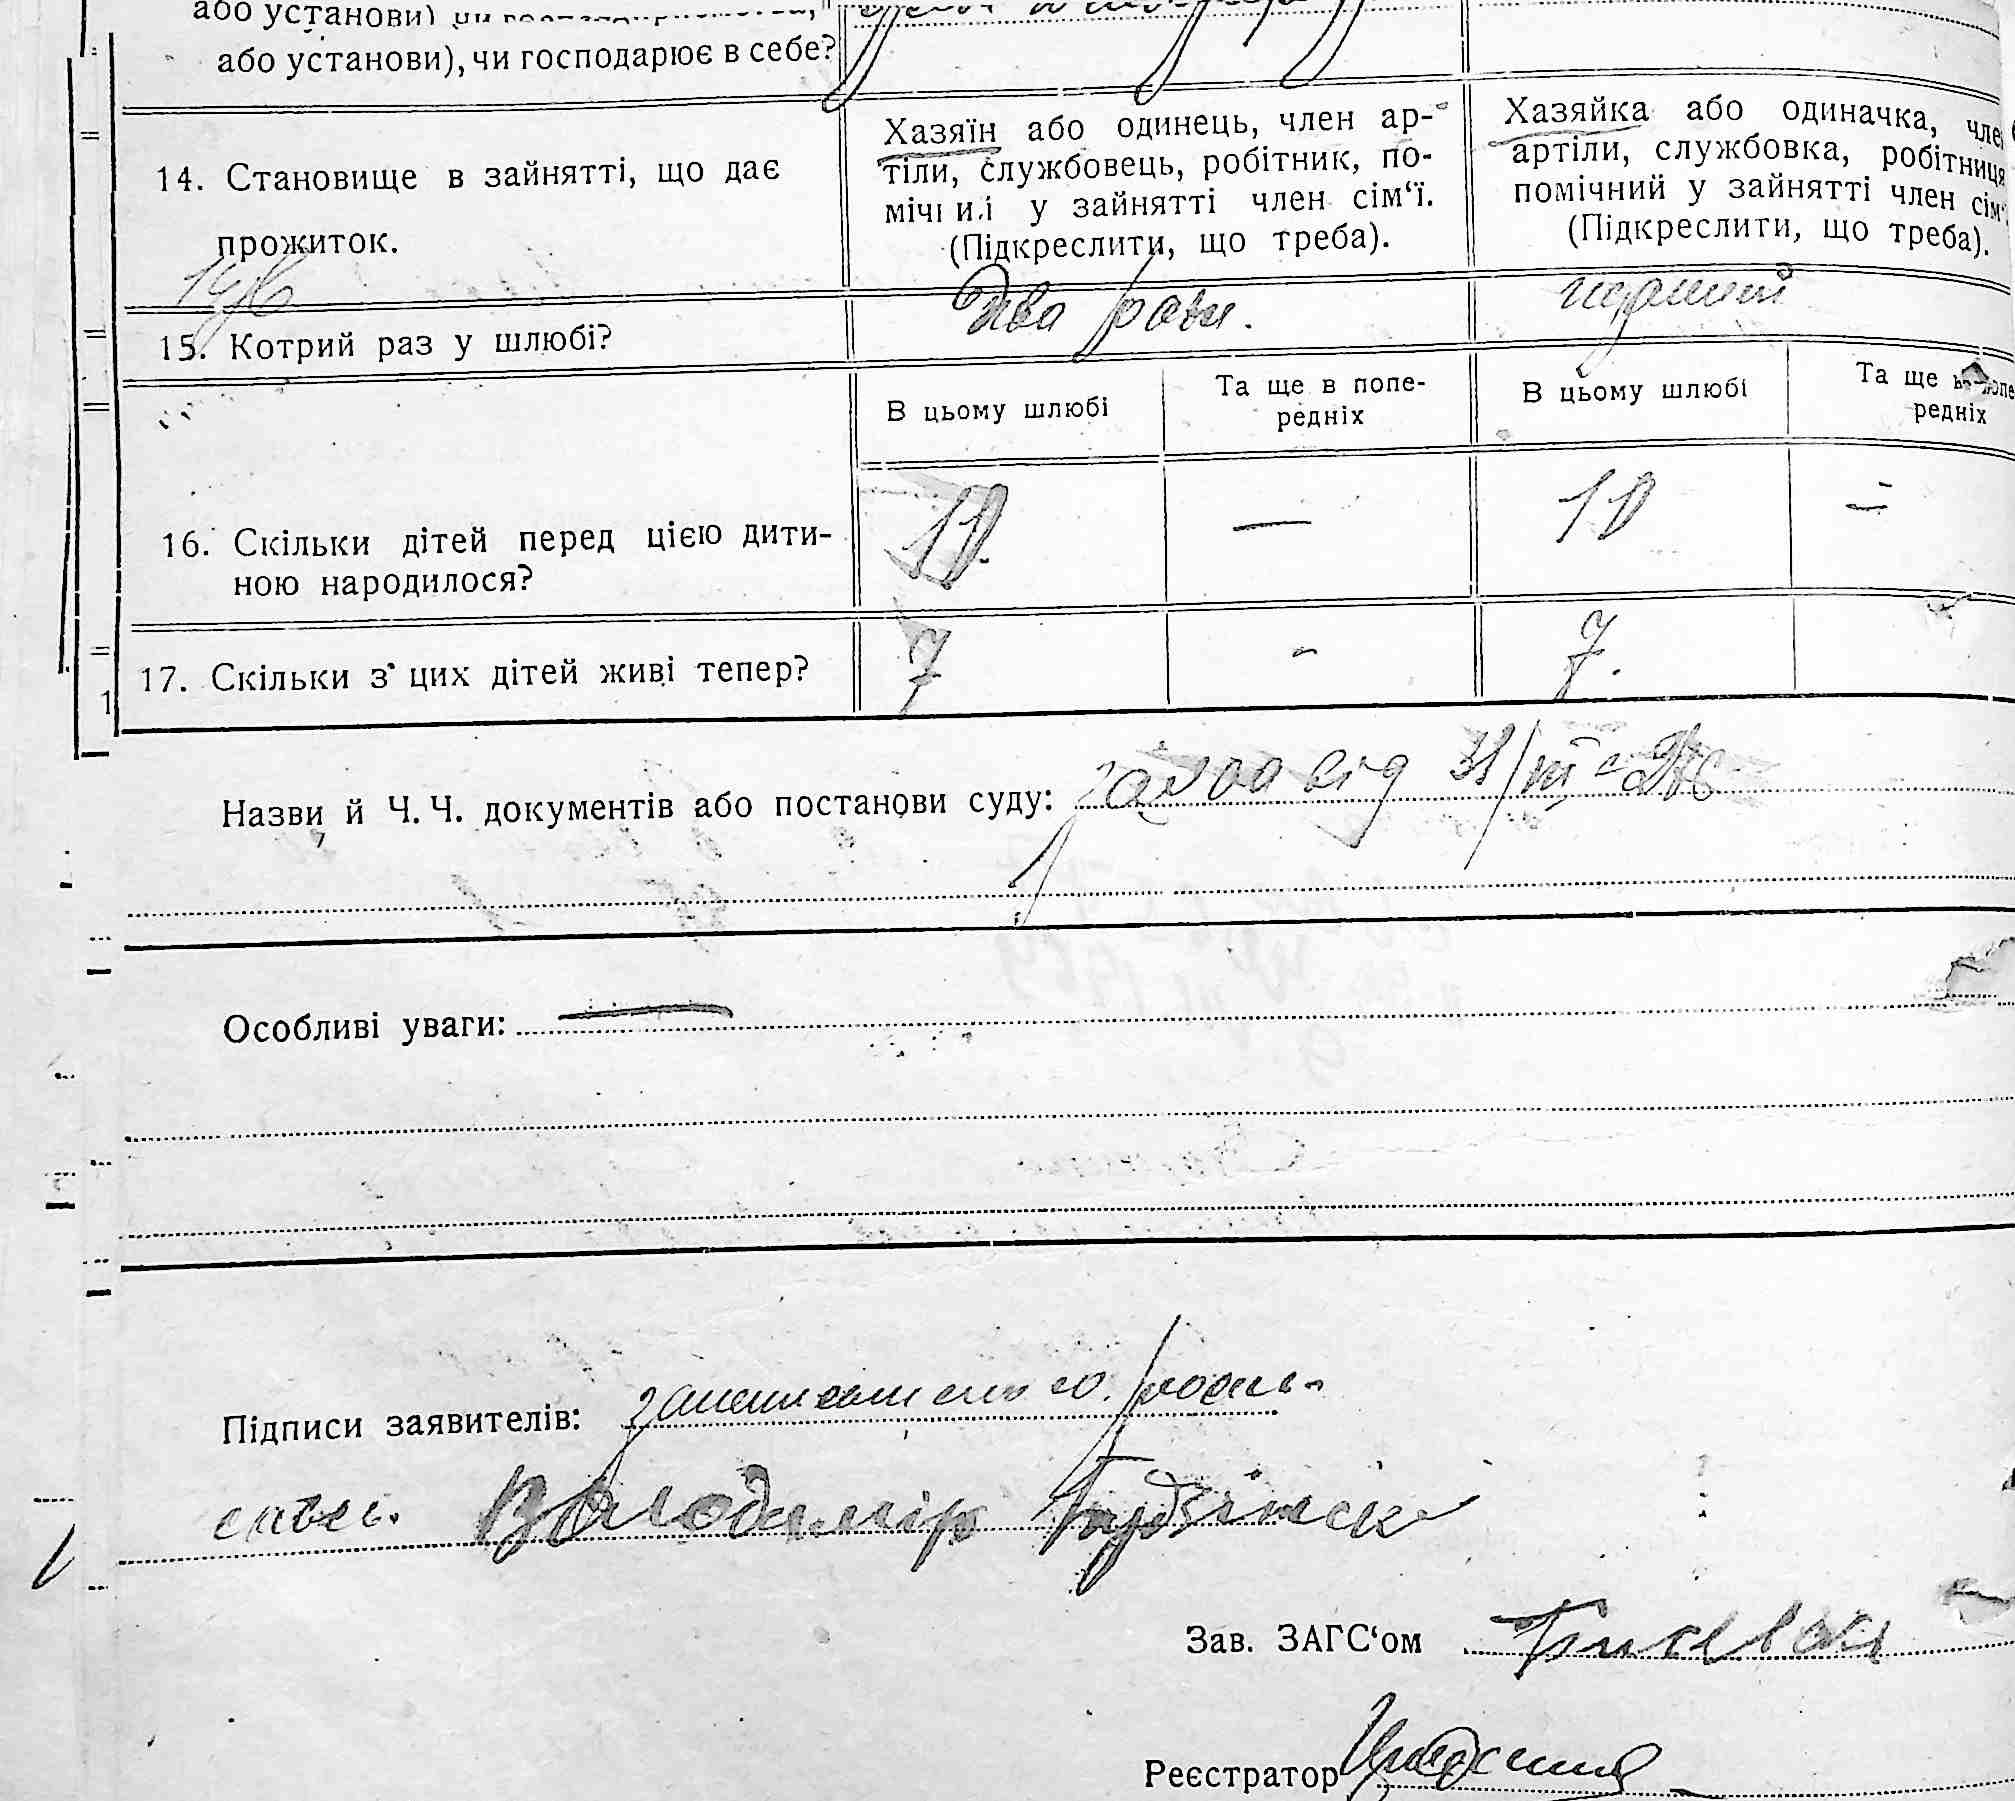 або установи)
або установи), чи господарює в себе?
14. Становище в зайнятті, що дає
прожиток.
Хазяїн або одинець, член ар-
тіли, службовець, робітник, по-
у зайнятті член сім‘ї.
(Підкреслити, що треба).
Хазяйка або одиначка,
артіли, службовка, робітниця
помічний у зайнятті член сім‘
(Підкреслити, що треба).
15. Котрий раз у шлюбі?
Два рази.
перший
В цьому шлюбі
Та ще в попе-
редніх
В цьому шлюбі
Та ще
редніх
16. Скільки дітей перед цією дити-
ною народилося?
10
—
10
—
17. Скільки з' цих дітей живі тепер?
7
-
7.
Назви й Ч. Ч. документів або постанови суду: заява від 31/
Особливі уваги: —
Підписи заявителів:
Володимір
Зав. ЗАГС‘ом
Реєстратор